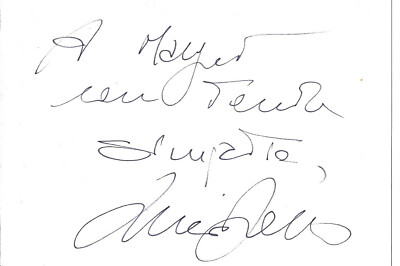 A Margret
con tanta
simpatia,